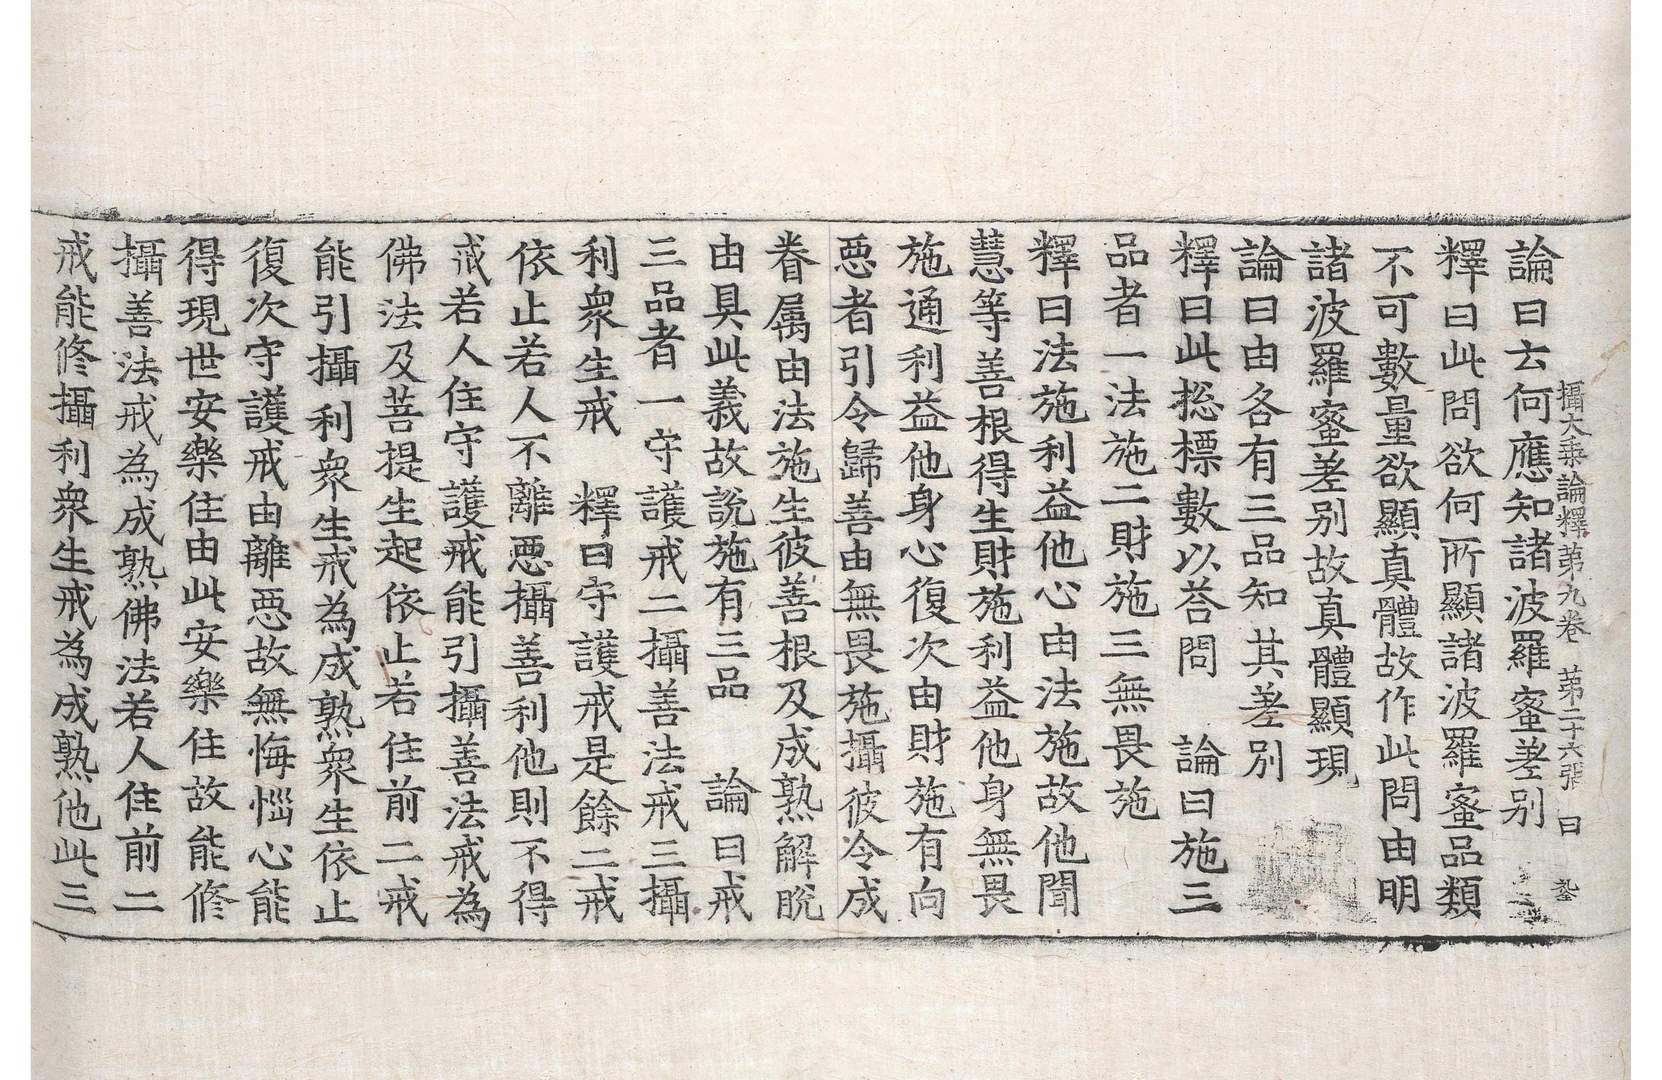 攝大乘論釋第九卷　第二十六張　曰
論曰云何應知諸波羅蜜差别
釋曰此問欲何所顯諸波羅蜜品類
不可數量欲顯真體故作此問由明
諸波羅蜜差别故真體顯現
論曰由各有三品知其差别
釋曰此捴標數以荅問　論曰施三
品者一法施二財施三無畏施
釋曰法施利益他心由法施故他聞
慧等善根得生財施利益他身無畏
施通利益他身心復次由財施有向
惡者引令歸善由無畏施攝彼令成
眷屬由法施生彼善根及成熟解脫
由具此義故説施有三品　論曰戒
三品者一守護戒二攝善法戒三攝
利衆生戒　釋曰守護戒是餘二戒
依止若人不離惡攝善利他則不得
戒若人住守護戒能引攝善法戒為
佛法及菩提生起依止若住前二戒
能引攝利衆生戒為成熟衆生依止
復次守護戒由離惡故無悔惱心能
得現世安樂住由此安樂住故能修
攝善法戒為成熟佛法若人住前二
戒能修攝利衆生戒為成熟他此三